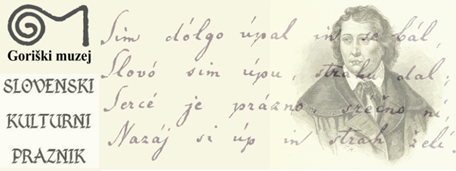 Goriški muzej
SLOVENSKI
KULTURNI
PRAZNIK
Sim dólgo úpal in se bál,
Slovó sim úpu, strahu dal;
Sercé je prázno, srečno ní,
Nazáj si úp in strah želí.